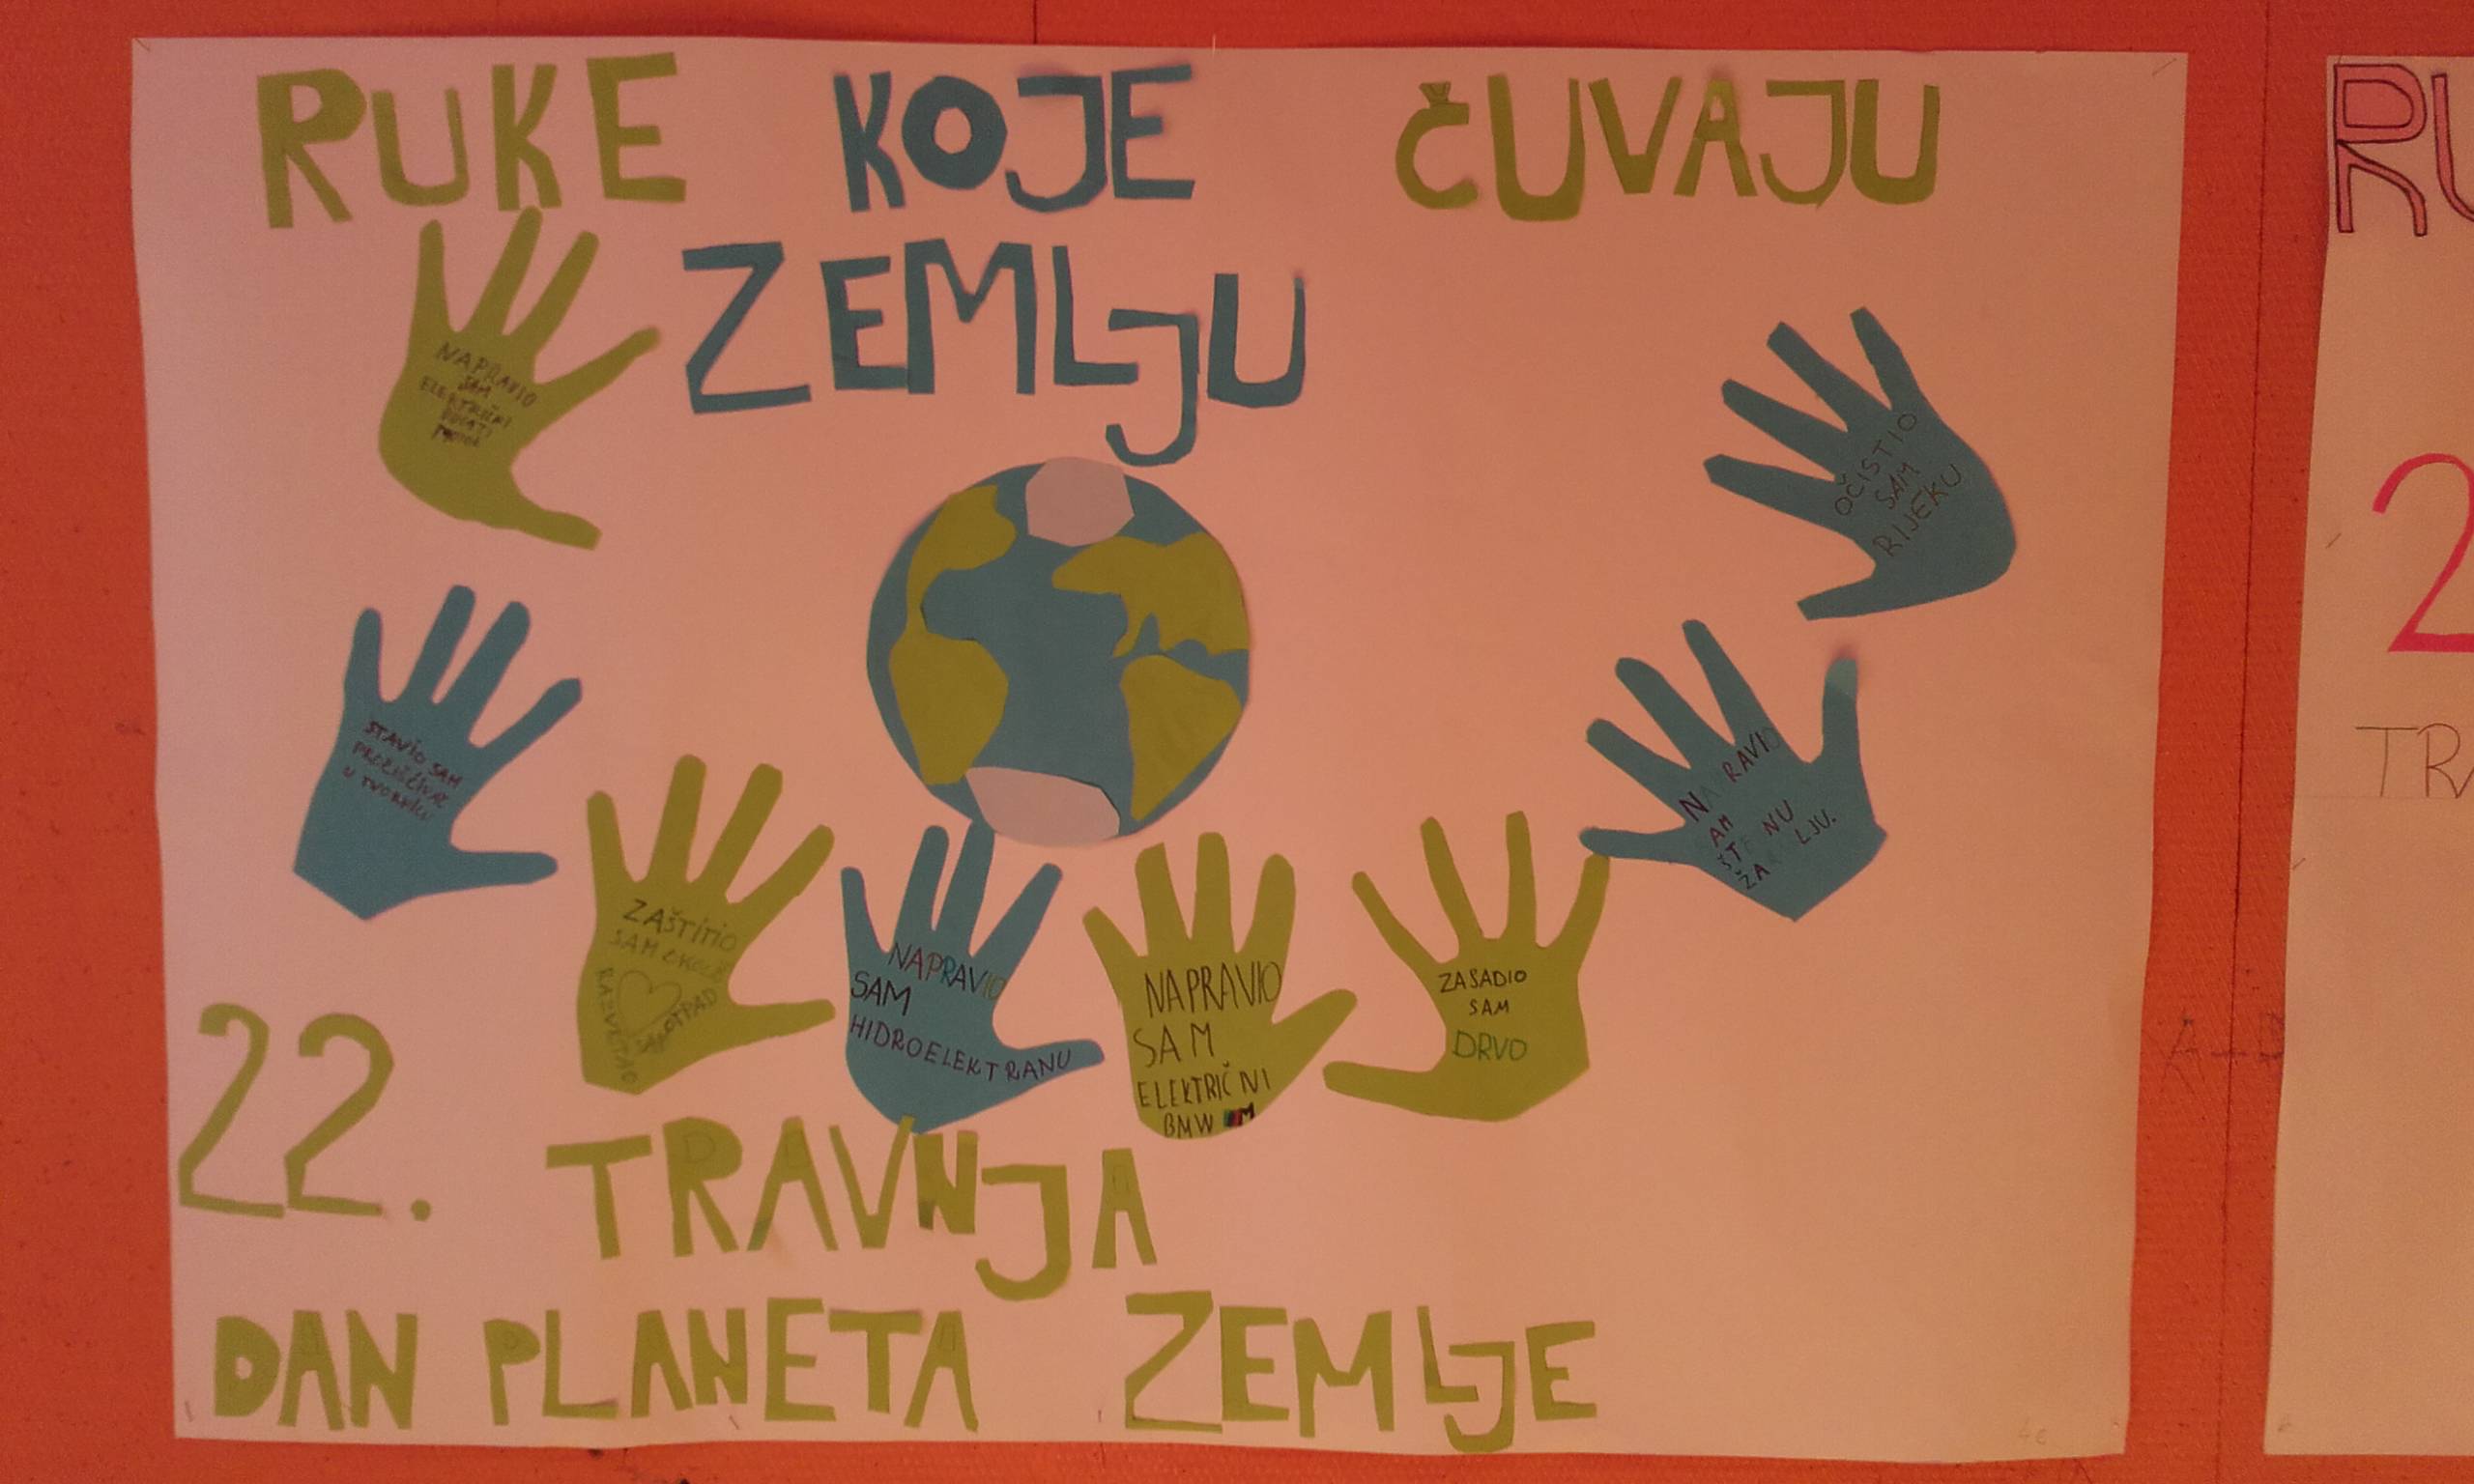 RUKE KOJE ČUVAJU
ZEMLJU
NAPRAVIO
SAM
ELEKTRIČNI
DUCATI
MOTOR
OČISTIO
SAM
RIJEKU
STAVIO SAM
PROČIŠĆIVAČ
U TVORNICU
ZAŠTITIO
SAM OKOLIŠ
RAZVRSTAO
SAM OTPAD
NAPRAVIO
SAM
HIDROELEKTRANU
NAPRAVIO
SAM
ELEKTRIČNI
BMW M
ZASADIO
SAM
DRVO
22. TRAVNJA
DAN PLANETA ZEMLJE
RU
2
TRA
A+B
4c